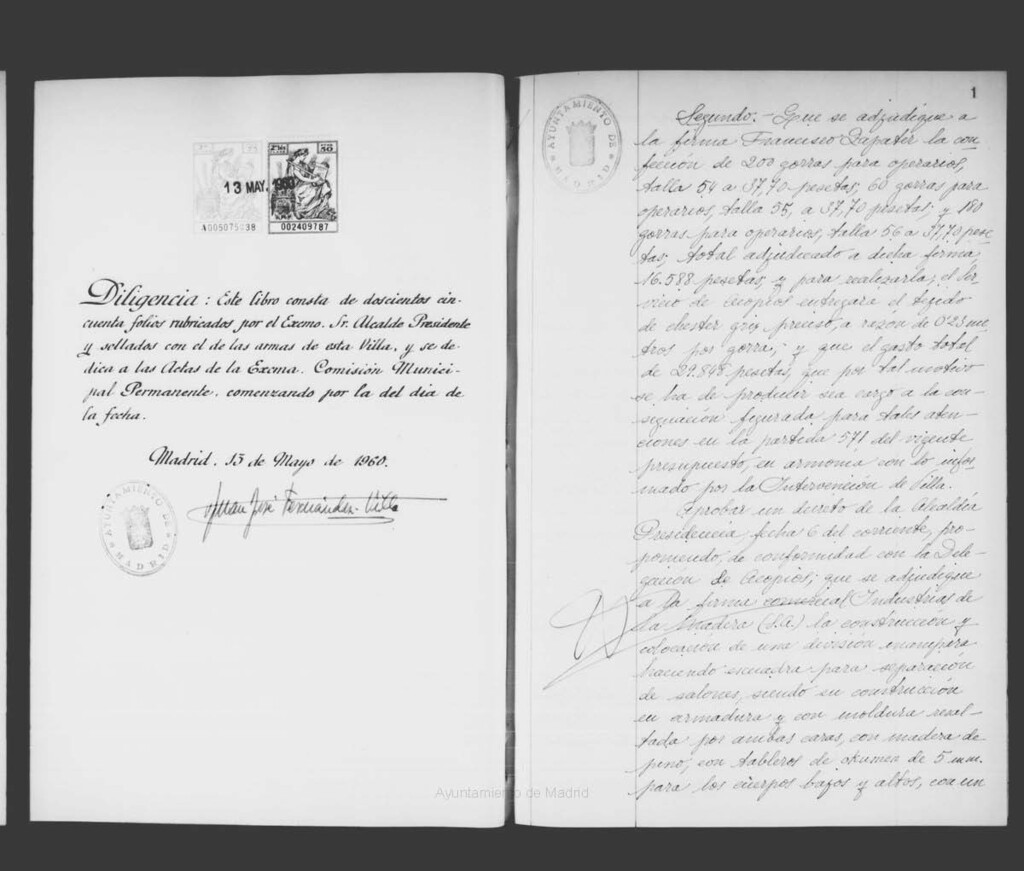 13 MAY. 1960
A005075038
002409787
Diligencia: Este libro consta de doscientos cin-
cuenta folios rubricados por el Excmo. Sr. Alcalde Presidente
y sellados con el de las armas de esta Villa, y se de-
dica a las Actas de la Excma. Comisión Munici-
pal Permanente, comenzando por la del día de
la fecha.
Madrid, 13 de Mayo de 1960.
Juan José Fernández-Villa
AYUNTAMIENTO DE MADRID
1
AYUNTAMIENTO DE MADRID
Segundo.- Que se adjudique a
la firma Francisco Zapater la con
fección de 200 gorras para operarios,
talla 54 a 37,70 pesetas; 60 gorras para
operarios, talla 55, a 37,70 pesetas; y 180
gorras para operarios, talla 56 a 37,70 pese
tas; total adjudicado a dicha firma,
16.588 pesetas, y para realizarla, el Ser
vicio de Acopios entregará el tejido
de chester gris preciso, a razón de 0'23 me
tros por gorra; y que el gasto total
de 29.848 pesetas, que por tal motivo
se ha de producir sea cargo a la con-
signación figurada para tales aten-
ciones en la partida 571 del vigente
presupuesto, en armonía con lo infor
mado por la Intervención de Villa.
Aprobar un decreto de la Alcaldía
Presidencia, fecha 6 del corriente, pro-
poniendo, de conformidad con la Dele-
gación de Acopios, que se adjudique
a la firma comercial Industrias de
la Madera (S.A.) la construcción y
colocación de una división mampara
haciendo escuadra para separación
de salones, siendo su construcción
en armadura y con moldura resal-
tada por ambas caras, con madera de
pino, con tableros de okumen de 5 mm.
para los cuerpos bajos y altos, con un
Ayuntamiento de Madrid